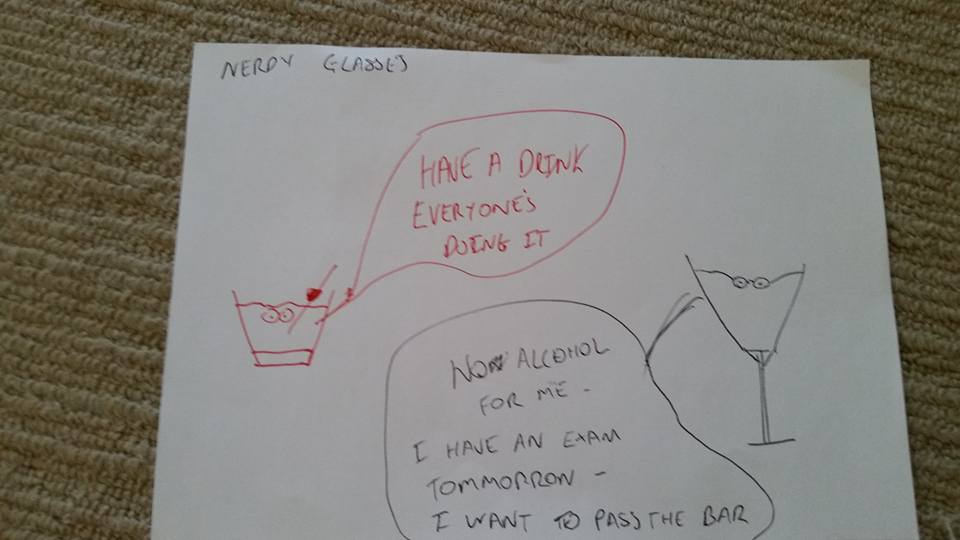 NERDY GLASSES
HAVE A DRINK
EVERYONE'S
DOING IT
NON ALCOHOL
FOR ME -
I HAVE AN EXAM
TOMMORROW -
I WANT TO PASS THE BAR